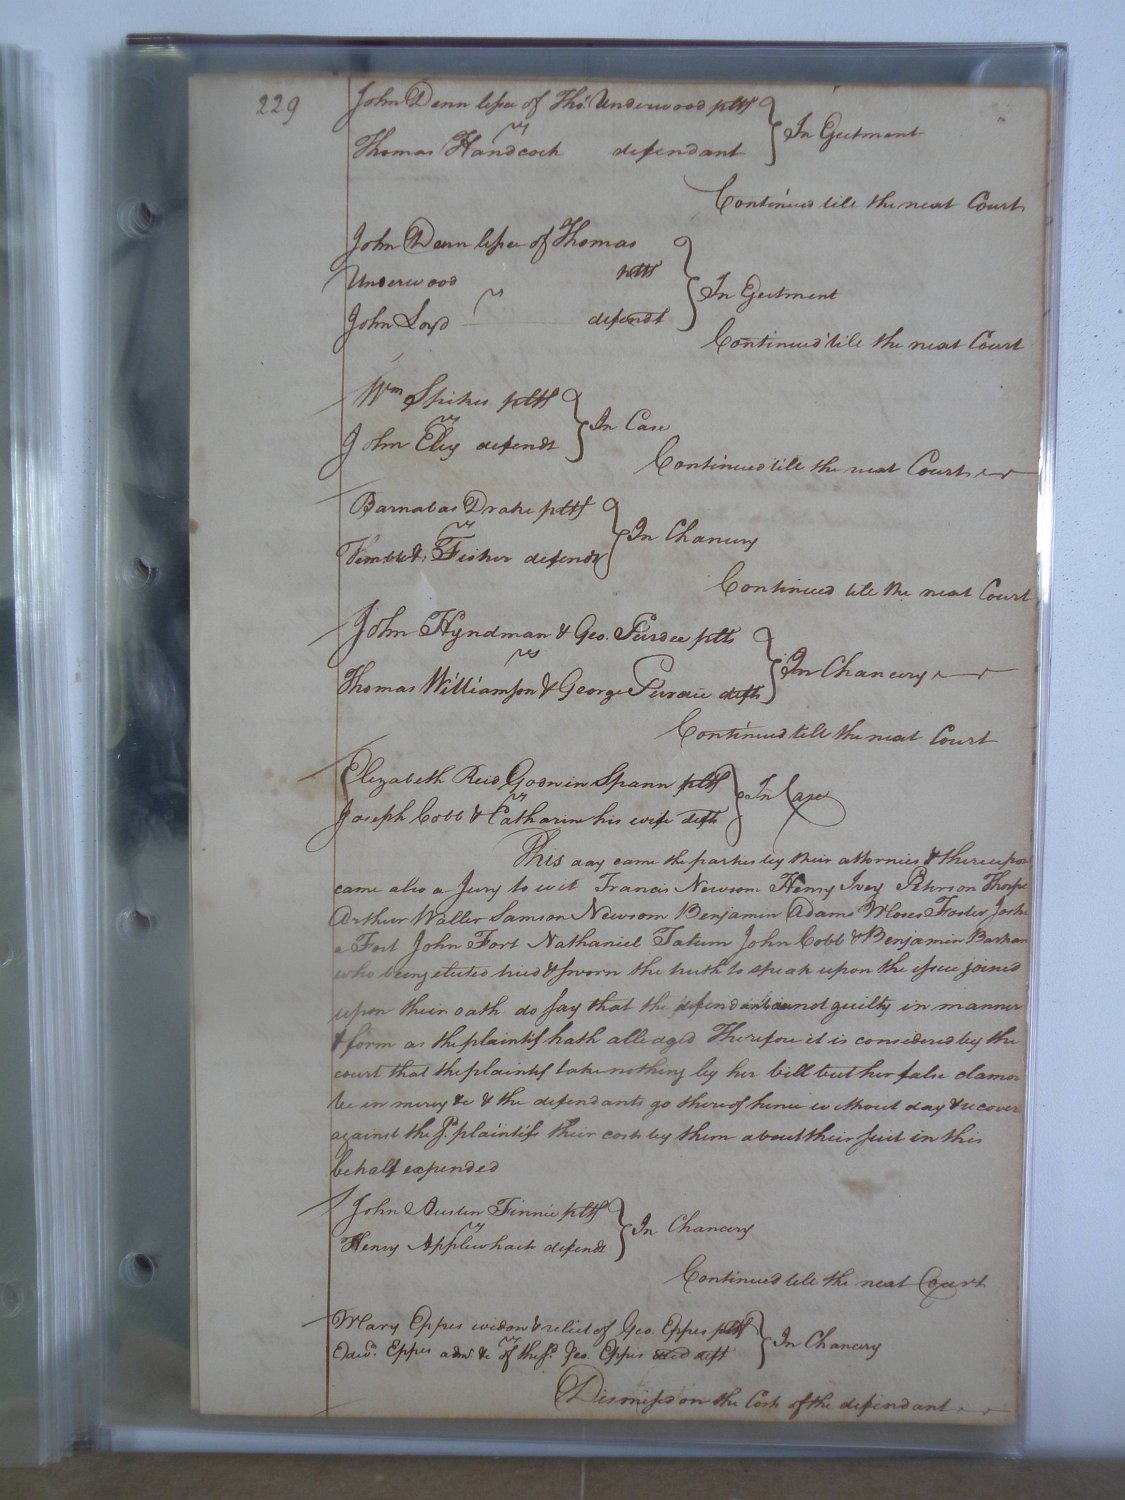 229
John Denn lessee of Tho.s Underwood pltf
vs
In Ejectment
Thomas Handcock defendant
Continued till the next Court
John Denn lessee of Thomas
Underwood pltf
vs
In Ejectment
John Loyd defendt
Continued till the next Court
Wm Spikes pltf
vs
In Case
John Ely defendt
Continued till the next Court
Barnabas Drake pltf
vs
In Chancery
Fisher defendt
Continued till the next Court
John Hyndman & Geo. Purdee plts
vs
In Chancery
Thomas Williamson & George Purdie defts
Continued till the next Court
Elizabeth Reid Godwin Spann pltf
vs
In Case
Joseph Cobb & Catharine his wife defts
This day came the parties by their attornies & thereupon
came also a Jury to wit Francis Newsom Henry Ivey Peterson Thorpe
Arthur Waller Samson Newsom Benjamin Adams Moses Foster Joshu
a Fort John Fort Nathaniel Tatum John Cobb & Benjamin Barham
who being elected tried & sworn the truth to speak upon the issue joined
upon their oath do say that the defendants not guilty in manner
& form as the plaintif hath alledged Therefore it is considered by the
court that the plaintif take nothing by her bill but her false clamor
be in mercy &c & the defendants go thereof hence without day & recover
against the sd plaintifs their costs by them about their suit in this
behalf expended
John Austin Finnie pltf
vs
In Chancery
Henry Applewhaite defendt
Continued till the next Court
Mary Eppes widow & relict of Geo. Eppes pltf
vs
In Chancery
Edwd Eppes admr &c of the sd Geo. Eppes decd deft
Dismissed on the Costs of the defendant